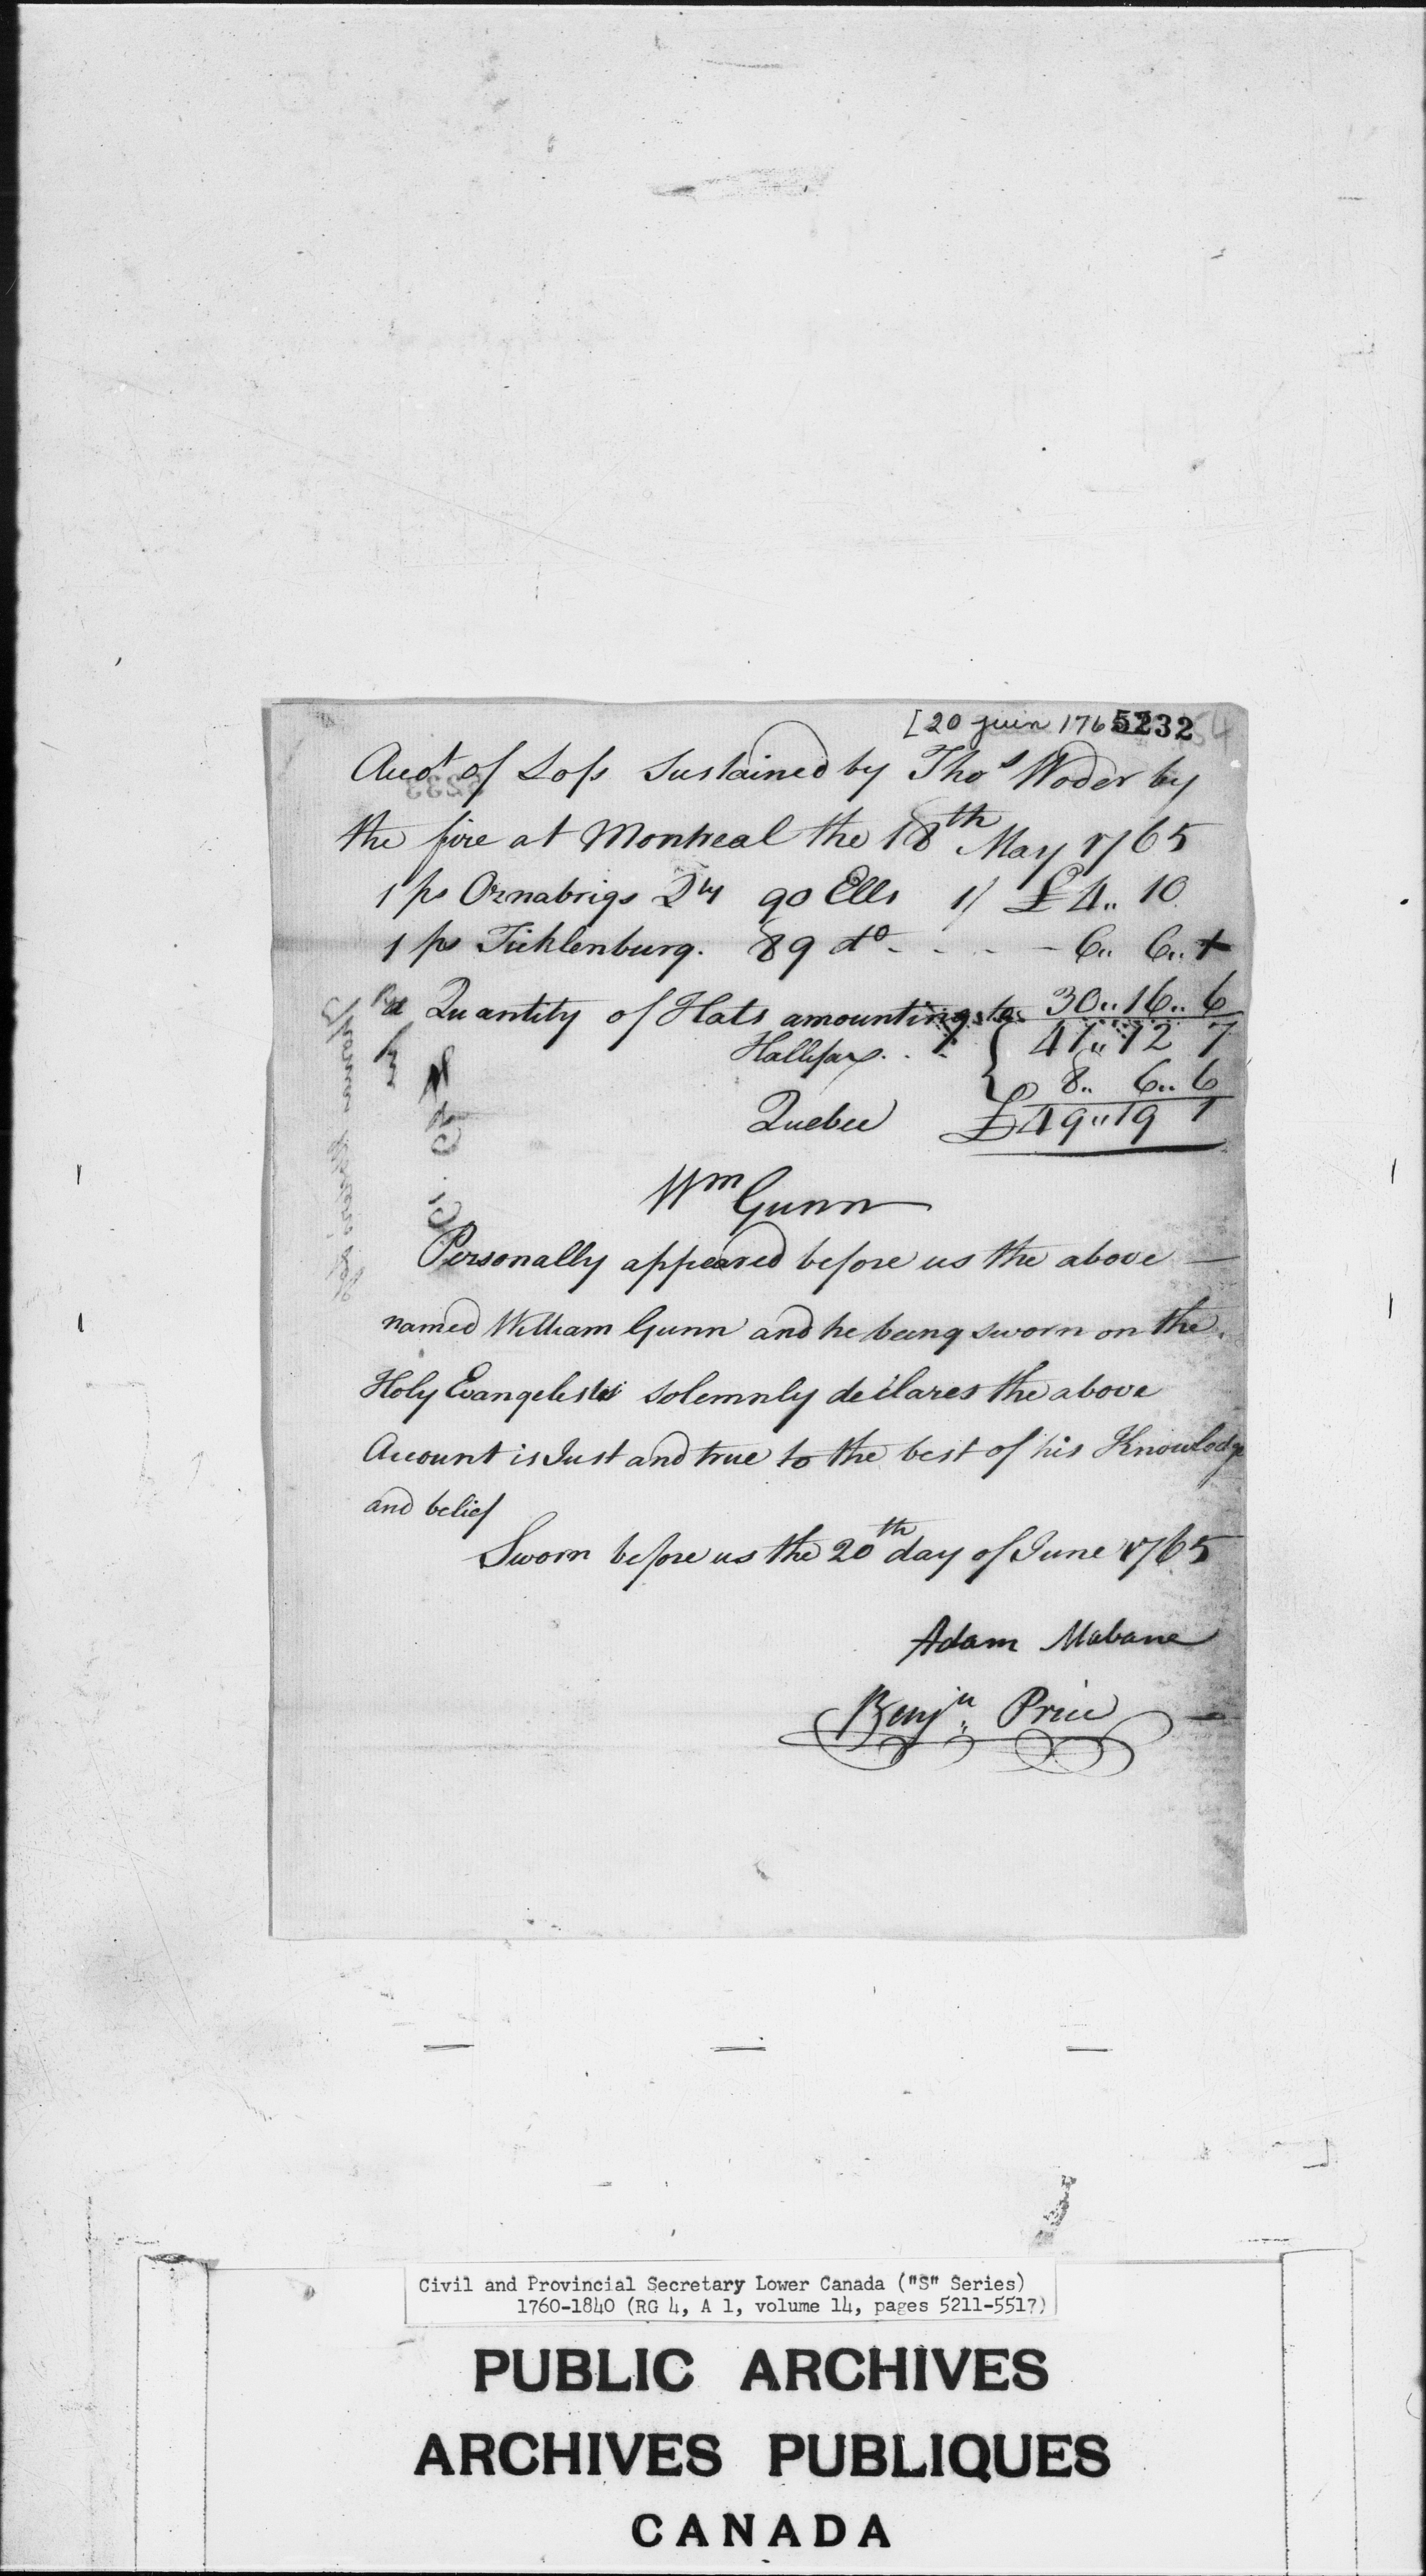 [20 juin 176 5232
Accot of Loss Sustained by Thos Woder by
the fire at Montreal the 18th May 1765
1 ps Oznabrigs Qty 90 Ells 1/ £4.. 10
1 ps Ticklenburg. 89 do - - - - 6.. 6..
a Quantity of Hats amounting to 30..16..6
Hallifax. . . { 41..12 7
8.. 6.. 6
Quebec £49..19 1
Wm Gunn
Personally appeared before us the above
named William Gunn and he being sworn on the
Holy Evangelists solemnly declares the above
Account is Just and true to the best of his Knowledge
and belief
Sworn before us the 20th day of June 1765
Adam Mabane
Benjn Price
Civil and Provincial Secretary Lower Canada ("S" Series)
1760-1840 (RG 4, A 1, volume 14, pages 5211-5517)
PUBLIC ARCHIVES
ARCHIVES PUBLIQUES
CANADA